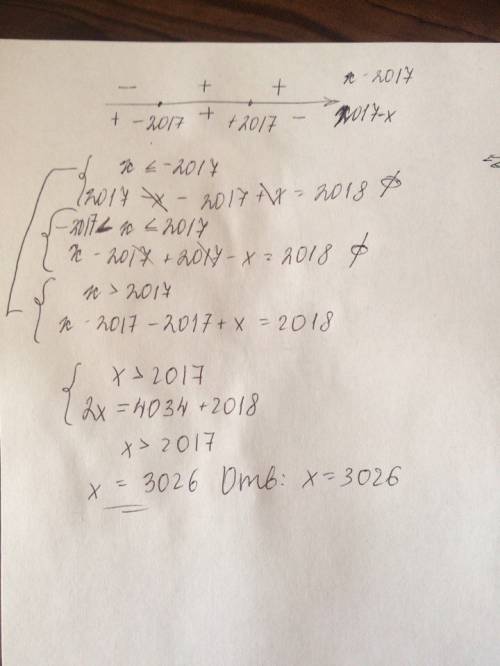 - + + x - 2017
+ -2017 + +2017 - 2017-x
x ≤ -2017
2017 - x - 2017 + x = 2018 ∅
-2017 < x ≤ 2017
x - 2017 + 2017 - x = 2018 ∅
x > 2017
x - 2017 - 2017 + x = 2018
x > 2017
2x = 4034 + 2018
x > 2017
x = 3026 Отв: x = 3026